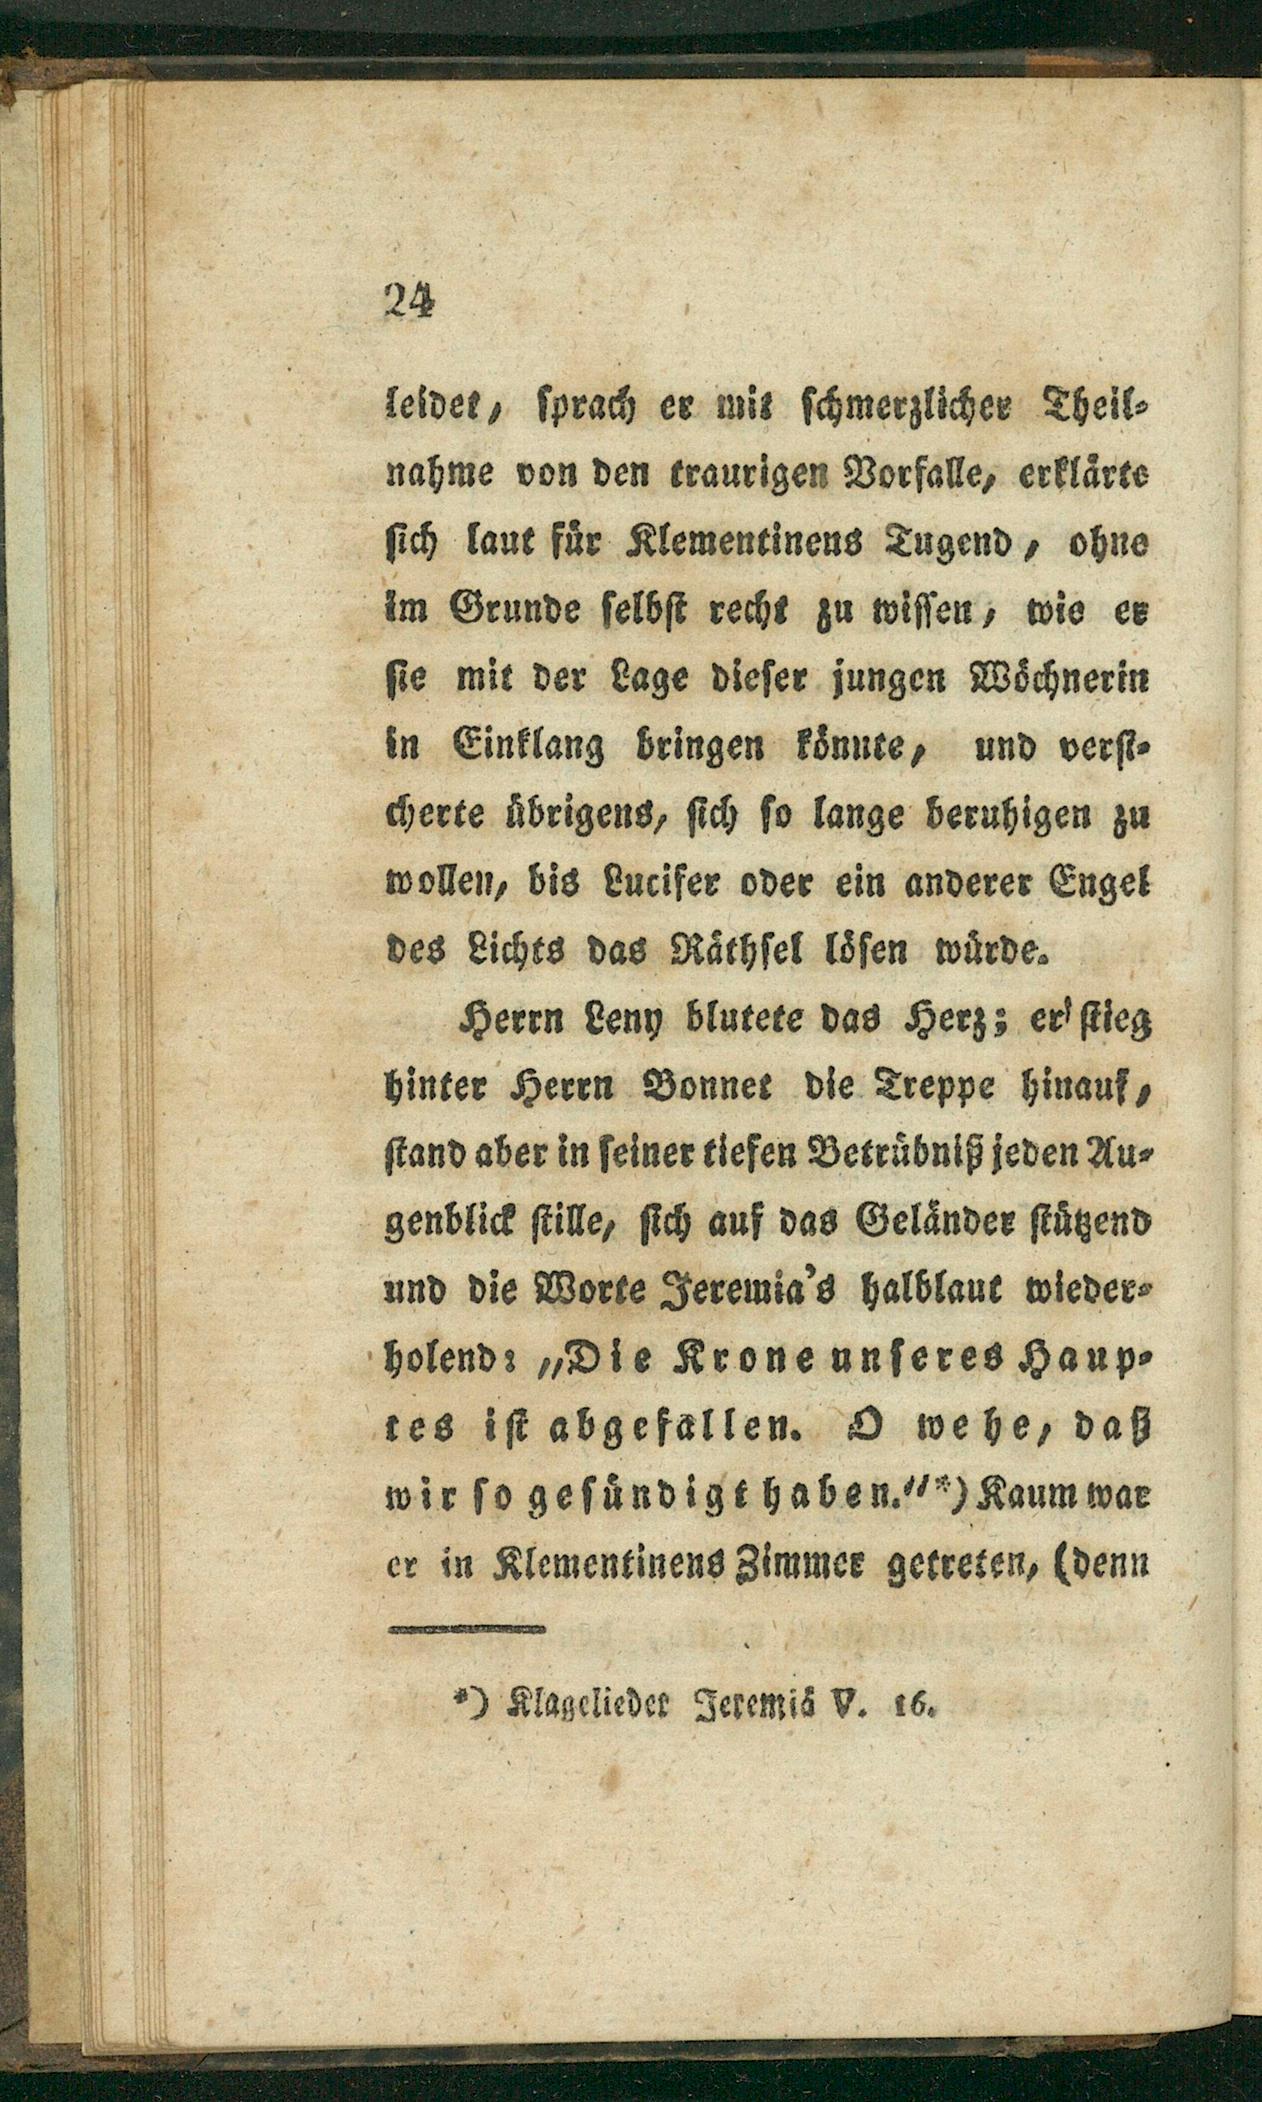 24
leidet, sprach er mit schmerzlicher Theil-
nahme von den traurigen Vorfalle, erklärte
sich laut für Klementinens Tugend, ohne
im Grunde selbst recht zu wissen, wie er
sie mit der Lage dieser jungen Wöchnerin
in Einklang bringen könnte, und versi-
cherte übrigens, sich so lange beruhigen zu
wollen, bis Lucifer oder ein anderer Engel
des Lichts das Räthsel lösen würde.
Herrn Leny blutete das Herz; er stieg
hinter Herrn Bonnet die Treppe hinauf,
stand aber in seiner tiefen Betrübniß jeden Au-
genblick stille, sich auf das Geländer stützend
und die Worte Jeremia's halblaut wieder-
holend: „Die Krone unseres Haup-
tes ist abgefallen. O wehe, daß
wir so gesündigt haben."*) Kaum war
er in Klementinens Zimmer getreten, (denn
*) Klagelieder Jeremiä V. 16.